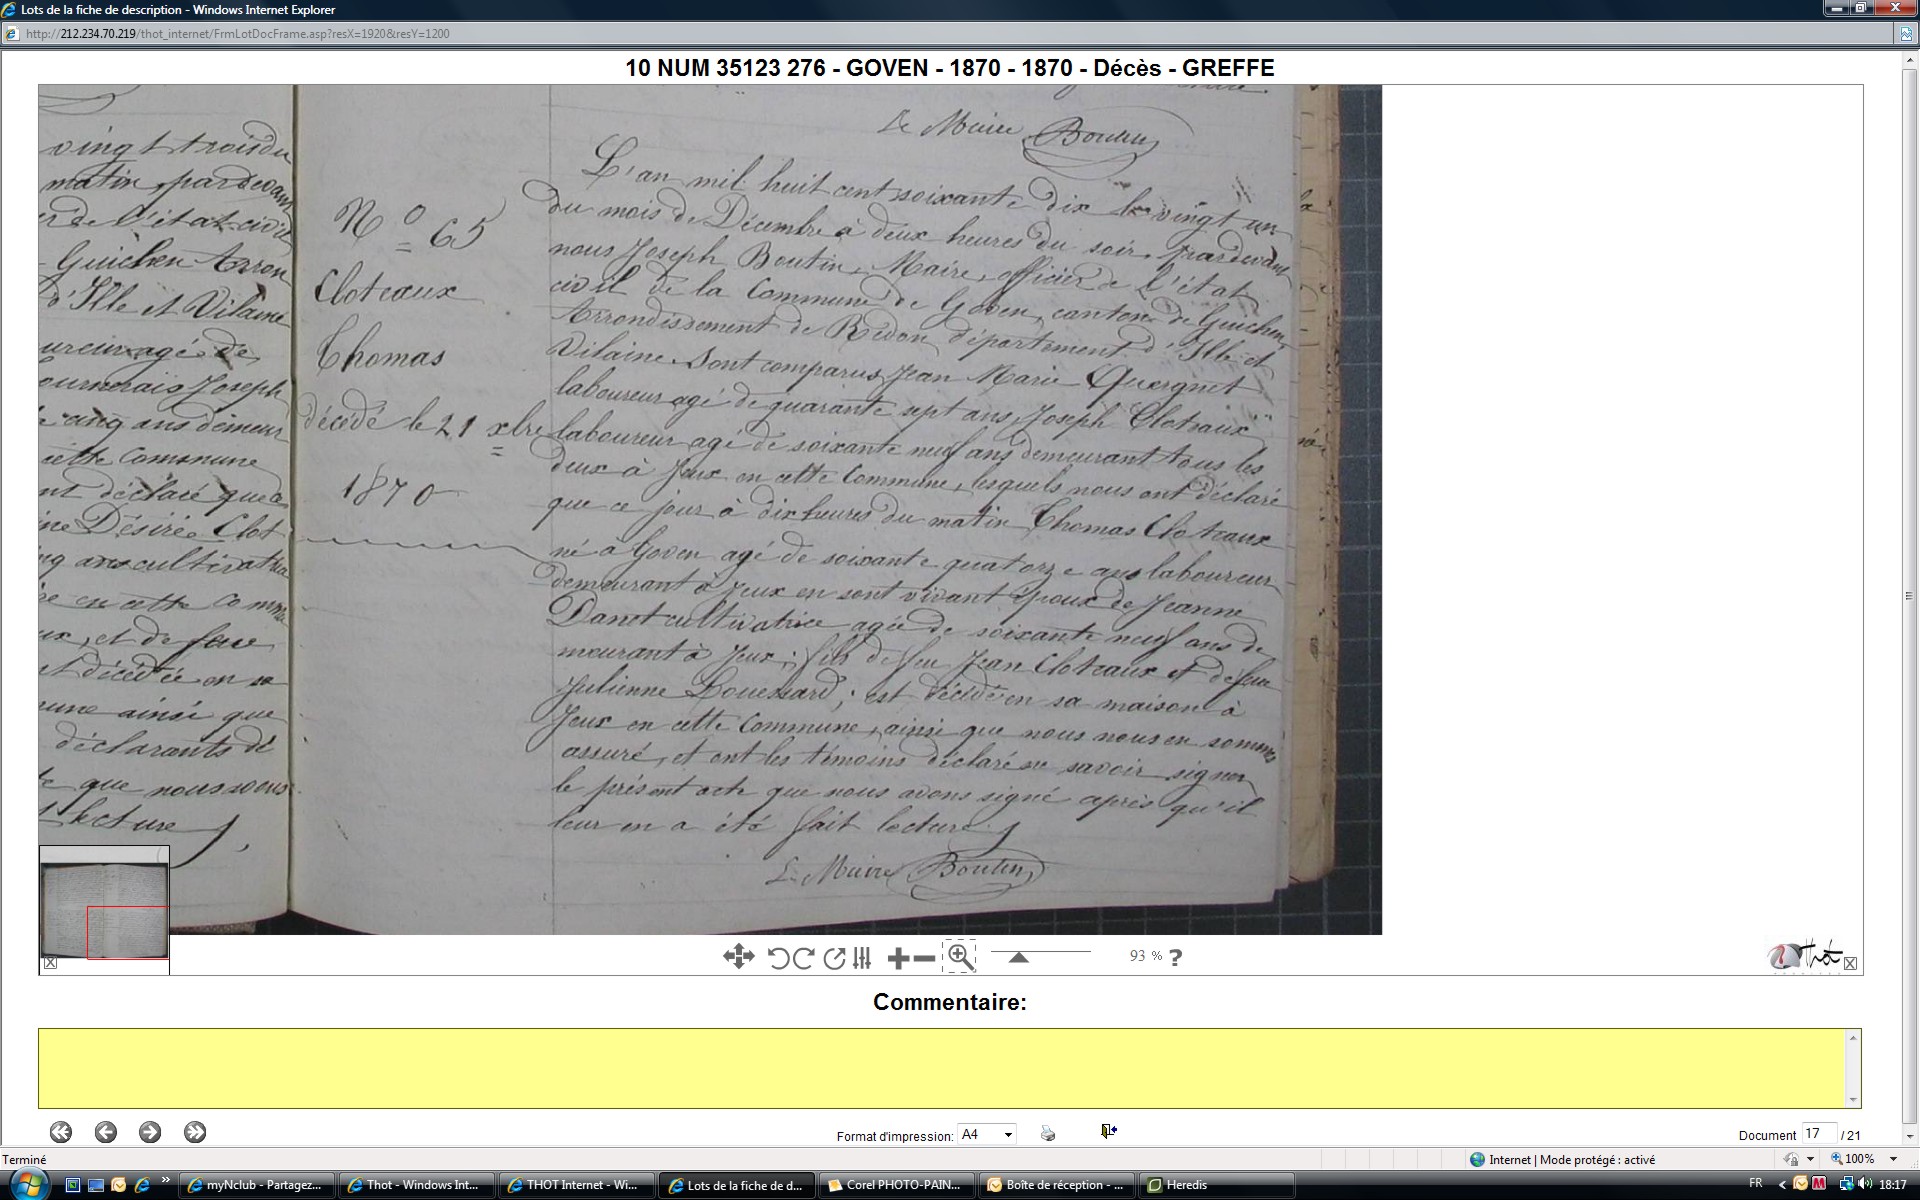 Lots de la fiche de description - Windows Internet Explorer
http://212.234.70.219/thot_internet/FrmLotDocFrame.asp?resX=1920&resY=1200
10 NUM 35123 276 - GOVEN - 1870 - 1870 - Décès - GREFFE
vingt trois du
matin, pardevant
de l'état civil
Guichen Arron
d'Ille et Vilaine
agé de
Joseph
cinq ans demeur
cette Commune
nt déclaré que
Désirée Clot
ans cultivatrice
en cette comm
ux, et de feue
décédée en sa
une ainsi que
déclarants de
que nous avons
lecture
Nº 65
Cloteaux
Thomas
décédé le 21 xbre
1870
Le Maire Boutin
L'an mil huit cent soixante dix le vingt un
du mois de Décembre à deux heures du soir, pardevant
nous Joseph Boutin, Maire, officier de l'état
civil de la Commune de Goven, canton de Guichen,
Arrondissement de Redon, département d'Ille et
Vilaine. Sont comparus Jean Marie
laboureur agé de quarante sept ans, Joseph Cloteaux
laboureur agé de soixante neuf ans demeurant tous les
deux à Jeux en cette Commune, lesquels nous ont déclaré
que ce jour à dix heures du matin Thomas Cloteaux
né a Goven agé de soixante quatorze ans laboureur
demeurant à Jeux en sont vivant époux de Jeanne
Danet cultivatrice agée de soixante neuf ans de
meurant à Jeux; fils de feu Jean Cloteaux et de feue
Julienne ; est décédé en sa maison à
Jeux en cette Commune, ainsi que nous nous en sommes
assuré, et ont les témoins déclaré ne savoir signer
le présent acte que nous avons signé après qu'il
leur en a été fait lecture
Le Maire Boutin
93 % ?
Thot
Commentaire:
Format d'impression: A4
Document 17 / 21
Terminé
Internet | Mode protégé : activé
100%
myNclub - Partagez...
Thot - Windows Int...
THOT Internet - Wi...
Lots de la fiche de d...
Corel PHOTO-PAIN...
Boîte de réception - ...
Heredis
FR
18:17